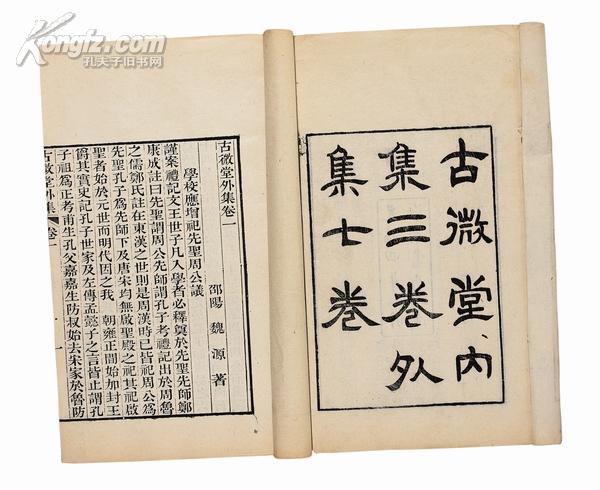 Kongfz.com
孔夫子旧书网
古微堂內
集三卷外
集七卷
古微堂外集卷一
學校應增祀先聖周公議
邵陽 魏源著
謹案禮記文王世子凡入學者必釋奠於先聖先師鄭
康成註曰先聖謂周公先師謂孔子考禮記出於周魯
之儒鄭氏註在東漢之世則是周漢時已皆祀周公爲
先聖孔子爲先師下及唐宋均無啟聖殿之祀其祀啟
聖者始於元世而明代因之我 朝雍正間始加封王
爵其實史記孔子世家及左傳孟懿子之言皆止謂孔
子祖爲正考甫生孔父嘉嘉生防叔始去宋家於魯防
古微堂外集 卷一 一